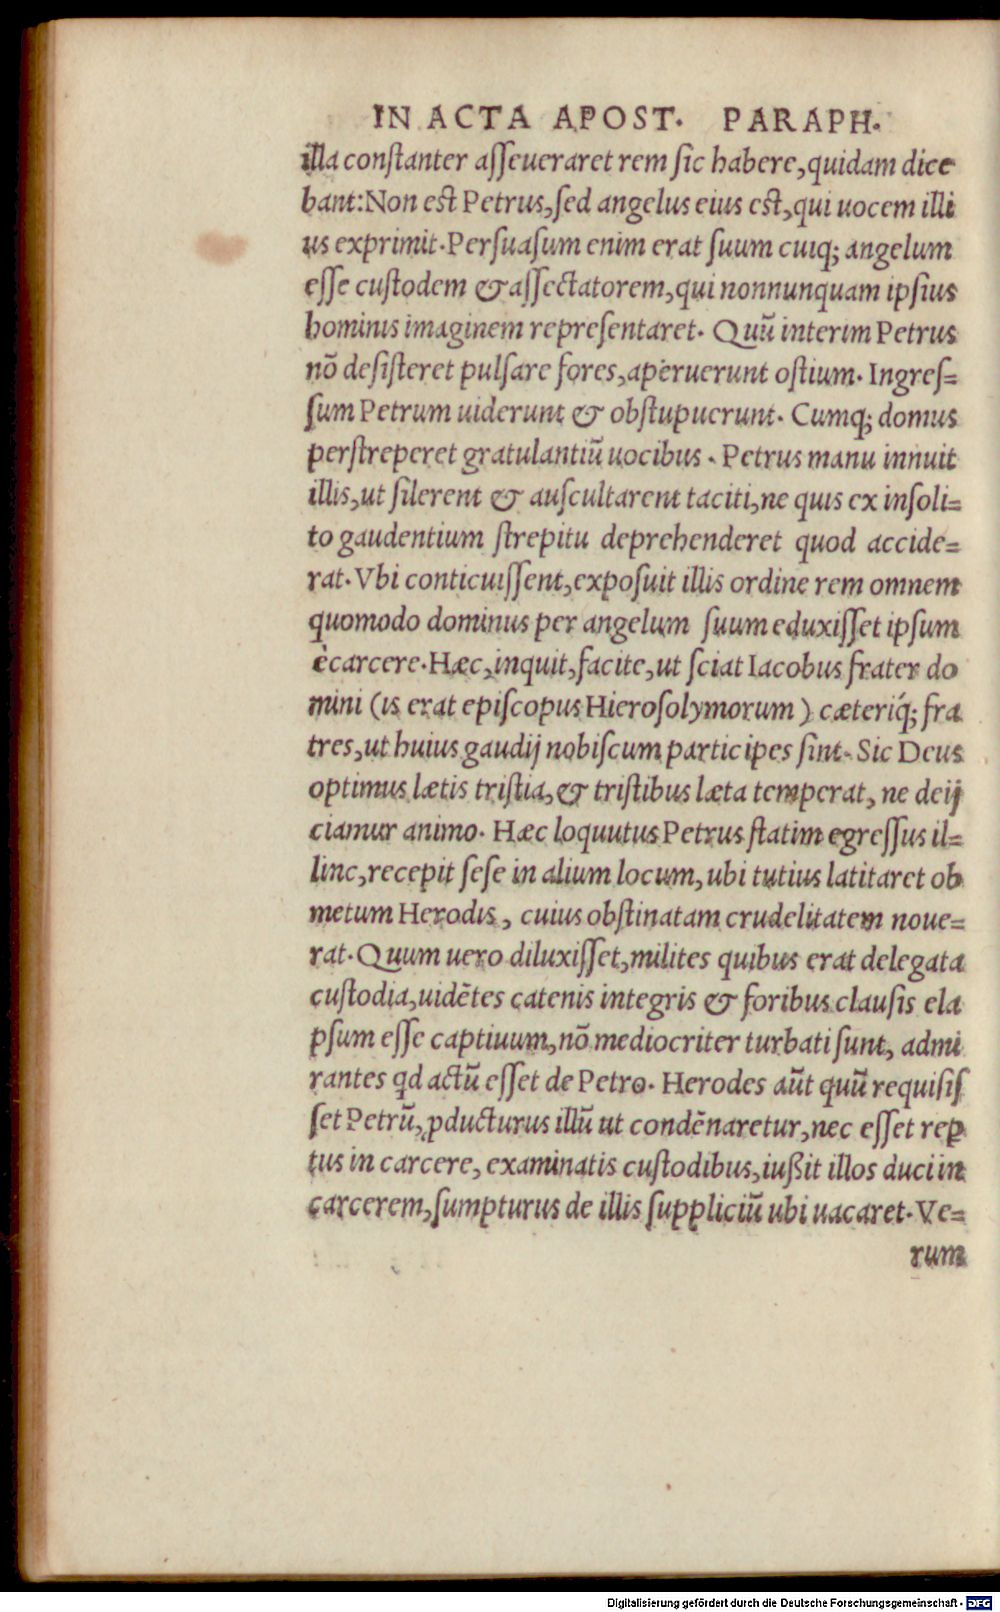 IN ACTA APOST. PARAPH.
illa conſtanter aſſeueraret rem ſic habere, quidam dice
bant: Non est Petrus, ſed angelus eius est, qui uocem illi
us exprimit. Perſuaſum enim erat ſuum cuiq; angelum
eſſe cuſtodem & aſſectatorem, qui nonnunquam ipſius
hominis imaginem repreſentaret. Quũ interim Petrus
nõ deſiſteret pulſare fores, aperuerunt oſtium. Ingreſ=
ſum Petrum uiderunt & obſtupuerunt. Cumq; domus
perſtreperet gratulantiũ uocibus. Petrus manu innuit
illis, ut ſilerent & auſcultarent taciti, ne quis ex inſoli=
to gaudentium ſtrepitu deprehenderet quod accide=
rat. Vbi conticuiſſent, expoſuit illis ordine rem omnem
quomodo dominus per angelum ſuum eduxiſſet ipſum
è carcere. Hæc, inquit, facite, ut ſciat Iacobus frater do
mini (is erat epiſcopus Hieroſolymorum) cæteriq́; fra
tres, ut huius gaudij nobiſcum participes ſint. Sic Deus
optimus lætis triſtia, & triſtibus læta temperat, ne deij
ciamur animo. Hæc loquutus Petrus ſtatim egreſſus il=
linc, recepit ſeſe in alium locum, ubi tutius latitaret ob
metum Herodis, cuius obſtinatam crudelitatem noue=
rat. Quum uero diluxiſſet, milites quibus erat delegata
cuſtodia, uidẽtes catenis integris & foribus clauſis ela
pſum eſſe captiuum, nõ mediocriter turbati ſunt, admi
rantes qd actũ eſſet de Petro. Herodes aũt quũ requiſiſ
ſet Petrũ, ꝓducturus illũ ut condẽnaretur, nec eſſet rep
tus in carcere, examinatis cuſtodibus, iußit illos duci in
carcerem, ſumpturus de illis ſuppliciũ ubi uacaret. Ve=
rum
Digitalisierung gefördert durch die Deutsche Forschungsgemeinschaft - DFG